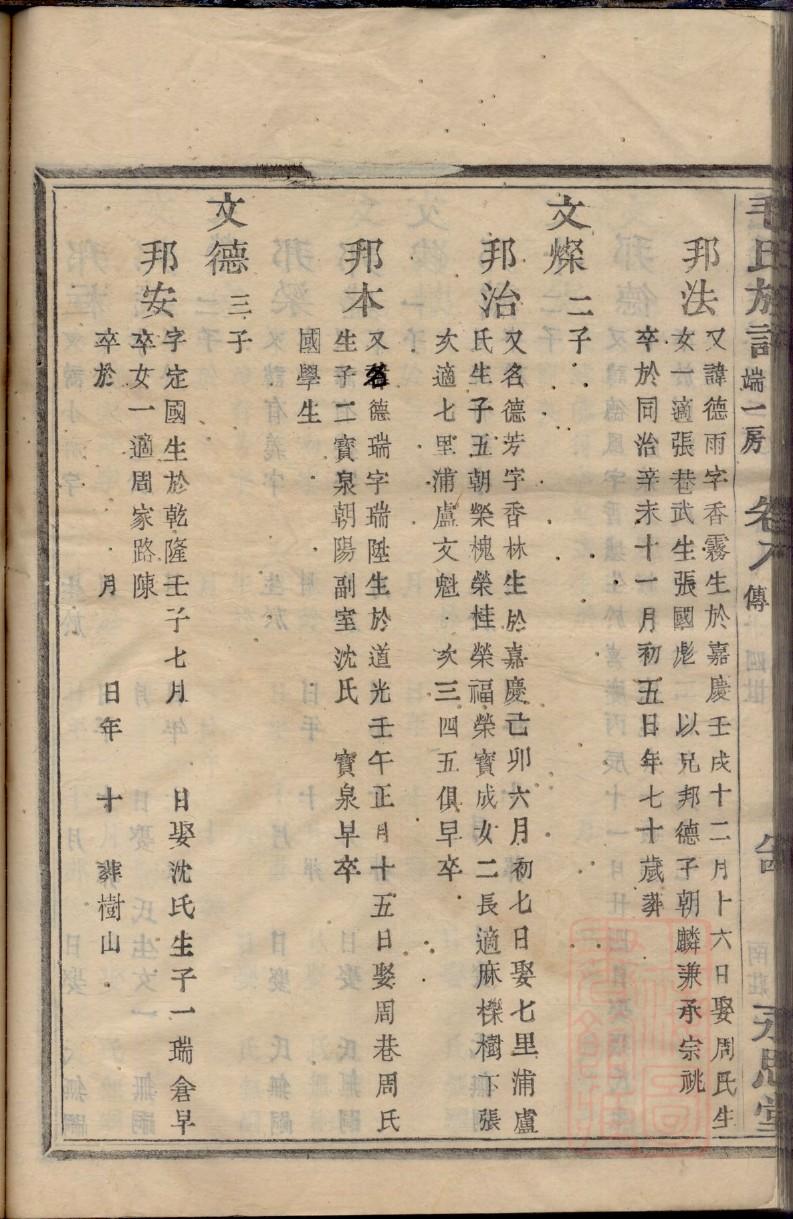 毛氏族譜 端一房 卷八 傳 永思堂
邦法
又諱德雨字香霧生於嘉慶壬戌十二月卜六日娶周氏生
女一適張巷武生張國彪 以兄邦德子朝麟兼承宗祧
卒於同治辛未十一月初五日年七十歲葬
文燦 二子
邦治
又名德芳字香林生於嘉慶己卯六月初七日娶七里浦盧
氏生子五朝榮槐榮桂榮福榮寶成女二長適麻櫟樹下張
次適七里浦盧文魁 次三四五俱早卒
邦本
又名德瑞字瑞陞生於道光壬午正月十五日娶周巷周氏
生子二寶泉朝陽副室沈氏 寶泉早卒
國學生
文德 三子
邦安
字定國生於乾隆壬子七月 日娶沈氏生子一瑞倉早
卒女一適周家路陳
卒於 月 日年 十 葬樹山